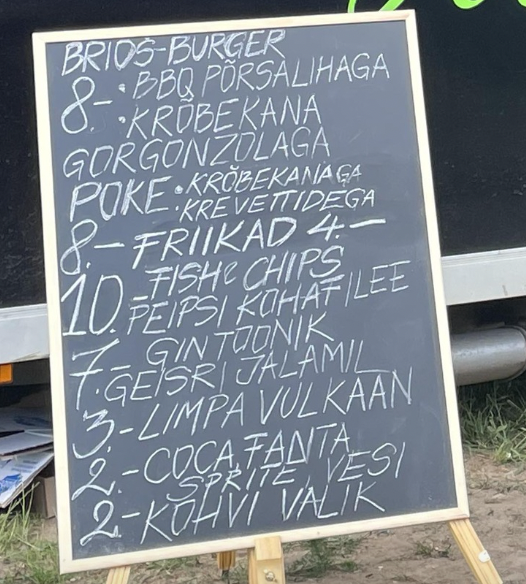 BRIOS-BURGER
8.- • BBQ PÕRSALIHAGA
• KRÕBEKANA
GORGONZOLAGA
POKE • KRÕBEKANAGA
• KREVETTIDEGA
8.- FRIIKAD 4.-
10.- FISH & CHIPS
PEIPSI KOHAFILEE
7.- GIN TOONIK
GEISRI JALAMIL
3.- LIMPA VULKAAN
2.- COCA FANTA
SPRITE, VESI
2.- KOHVI VALIK